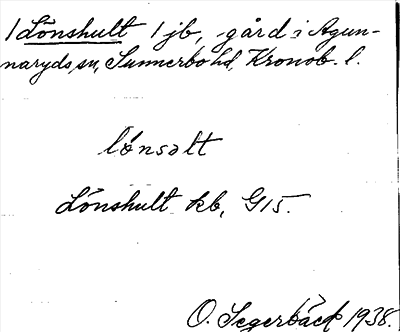 1 Lönshult 1 jb, gård i Agun-
naryds sn, Sunnerbo hd, Kronob. l.
lónsəlt
Lönshult kb, G15.
O. Segerbäck 1938.